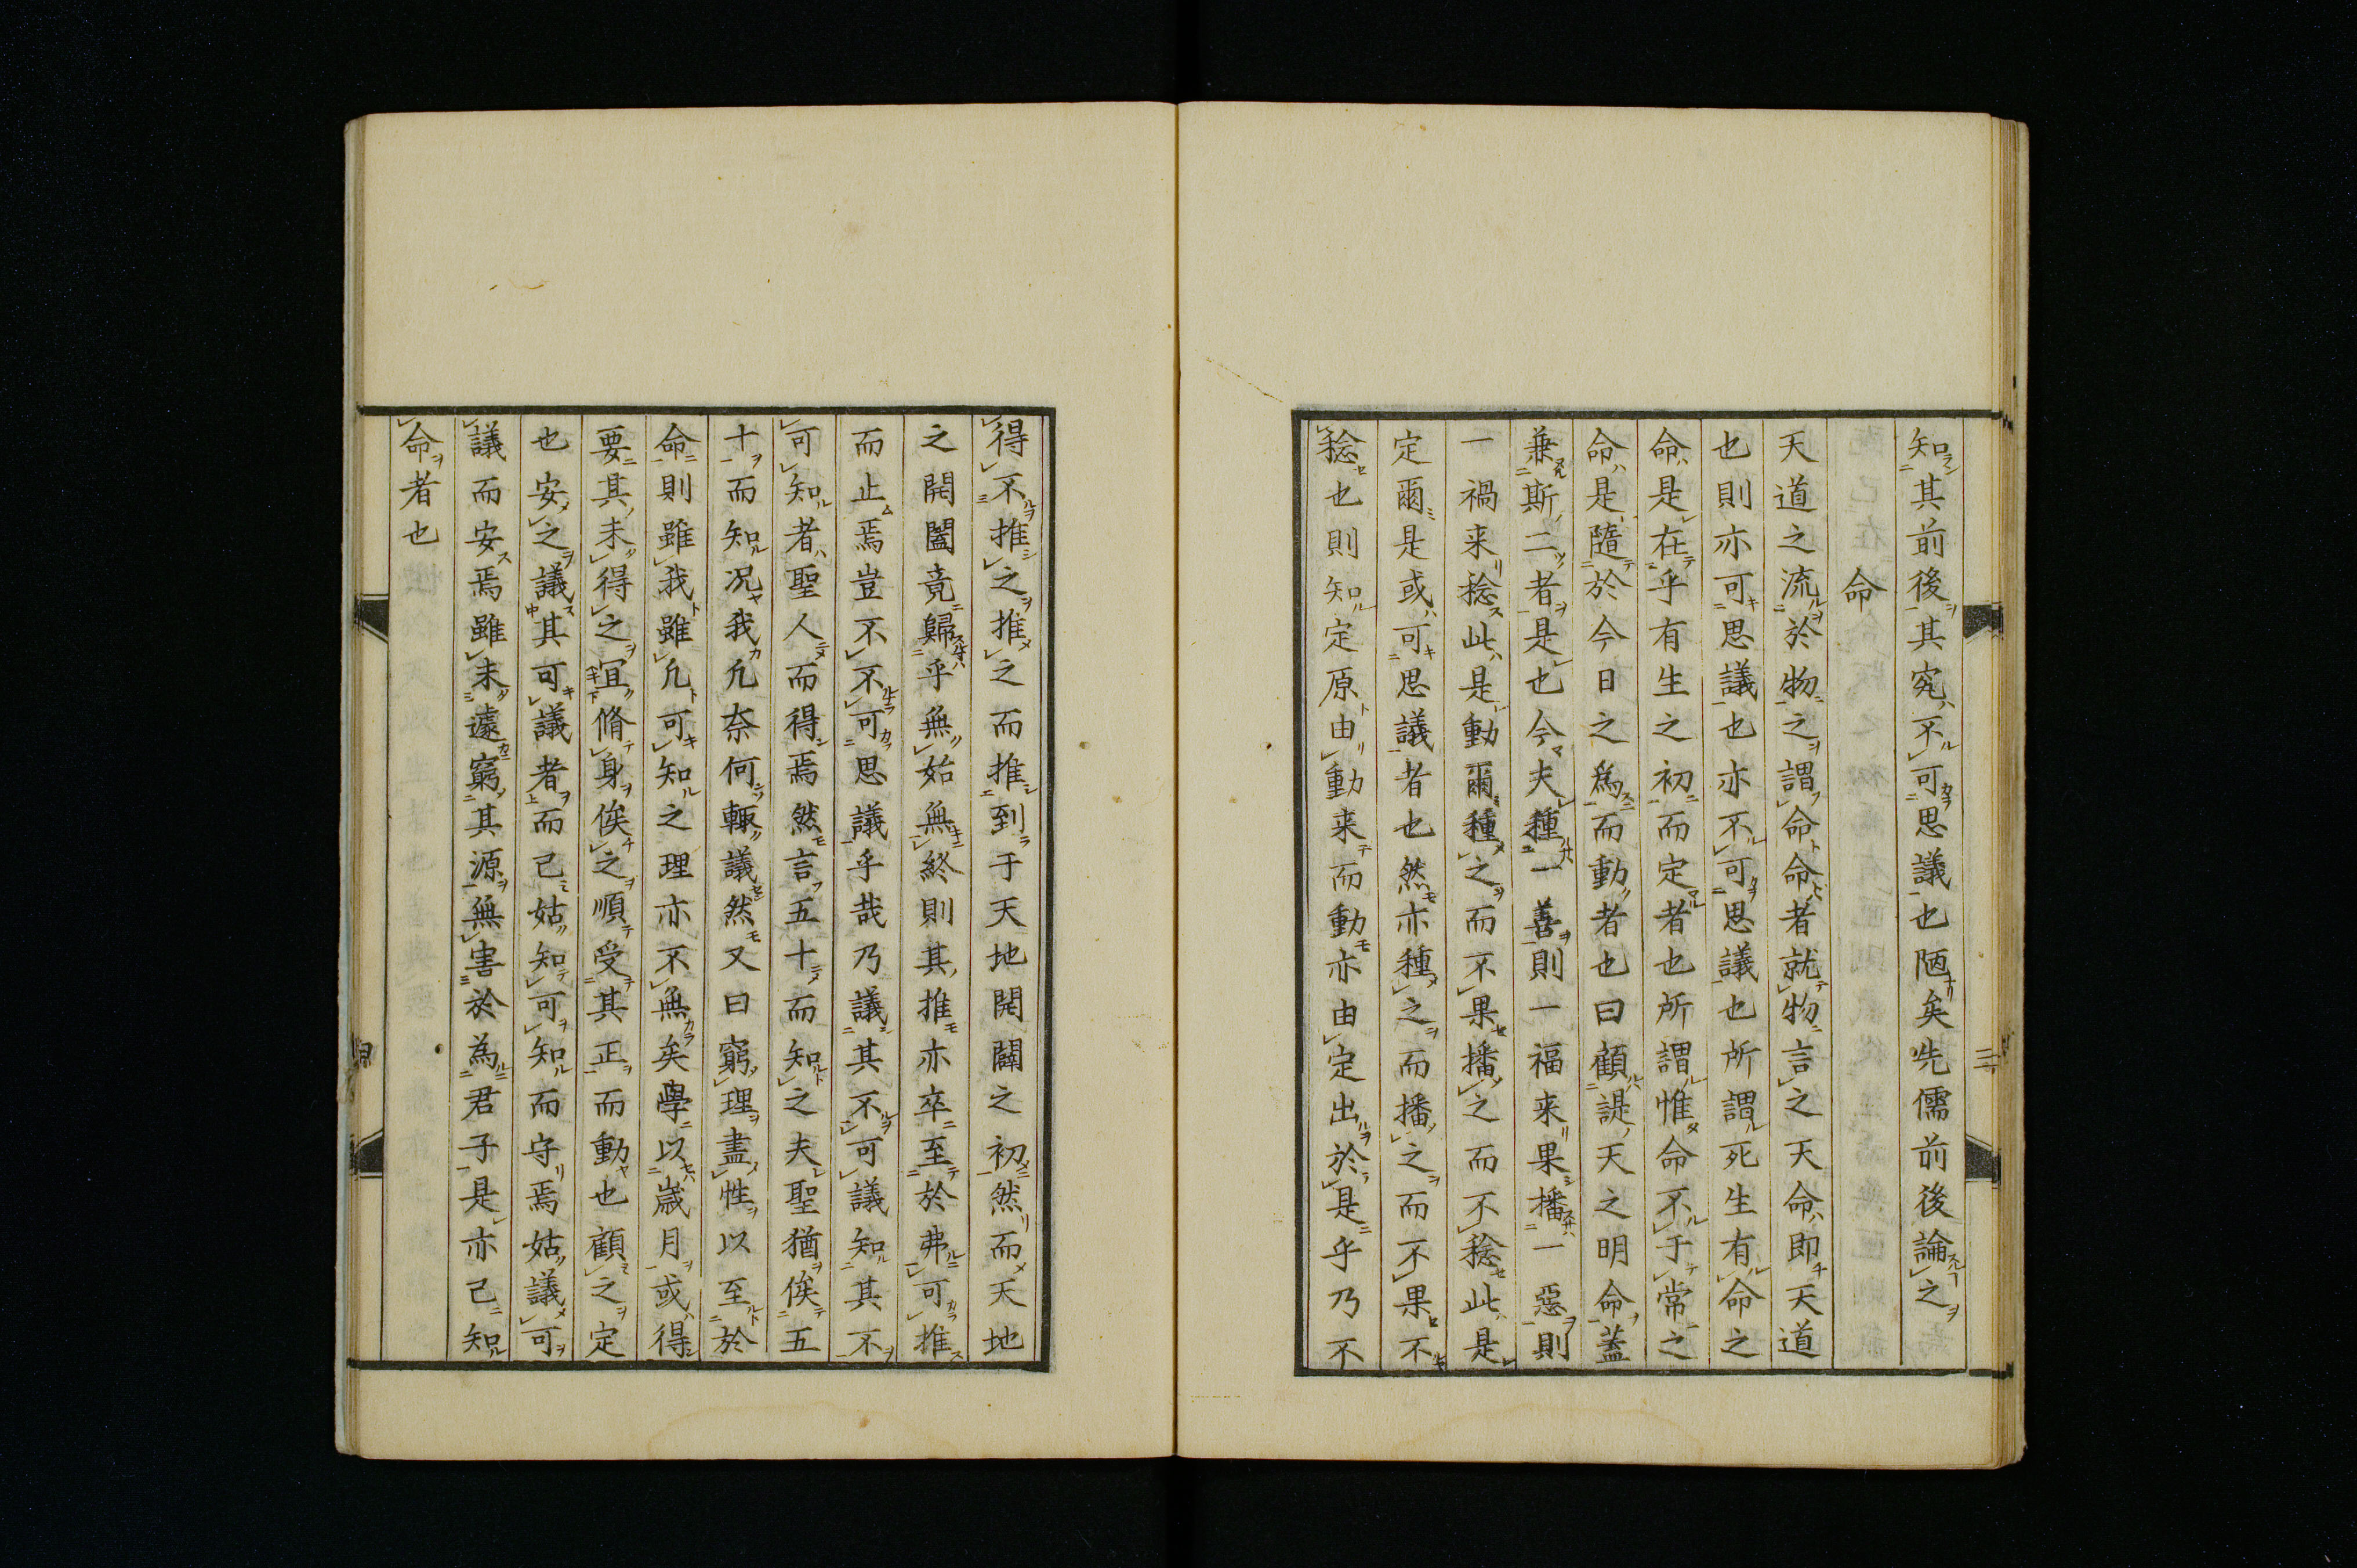 知其前後其究不可思議也陋矣先儒前後論之
命
天道之流於物之謂命命者就物言之天命即天道
也則亦可思議也亦不可思議也所謂死生有命之
命是在乎有生之初而定者也所謂惟命不于常之
命是隨於今日之為而動者也曰顧諟天之明命蓋
兼斯二者是也今夫種一善則一福来果播一惡則
一禍来稔此是動爾種之而不果播之而不稔此是
定爾是或可思議者也然亦種之而播之而不果不
稔也則知定原由動来而動亦由定出於是乎乃不
三
得不推之推之而推到于天地開闢之初然而天地
之開闔竟歸乎無始無終則其推亦卒至於弗可推
而止焉豈不不可思議乎哉乃議其不可議知其不
可知者聖人而得焉然言五十而知之夫聖猶俟五
十而知况我凢奈何輙議然又曰窮理盡性以至於
命則雖我雖凢可知之理亦不無矣學以歲月或得
要其未得之冝脩身俟之順受其正而動也顧之定
也安之議其可議者而已姑知可知而守焉姑議可
議而安焉雖未遽窮其源無害於為君子是亦已知
命者也